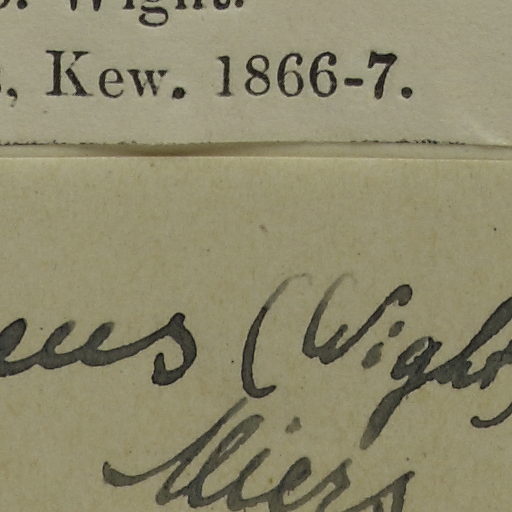 Wight.
Kew. 1866-7.
(Wight)
Miers